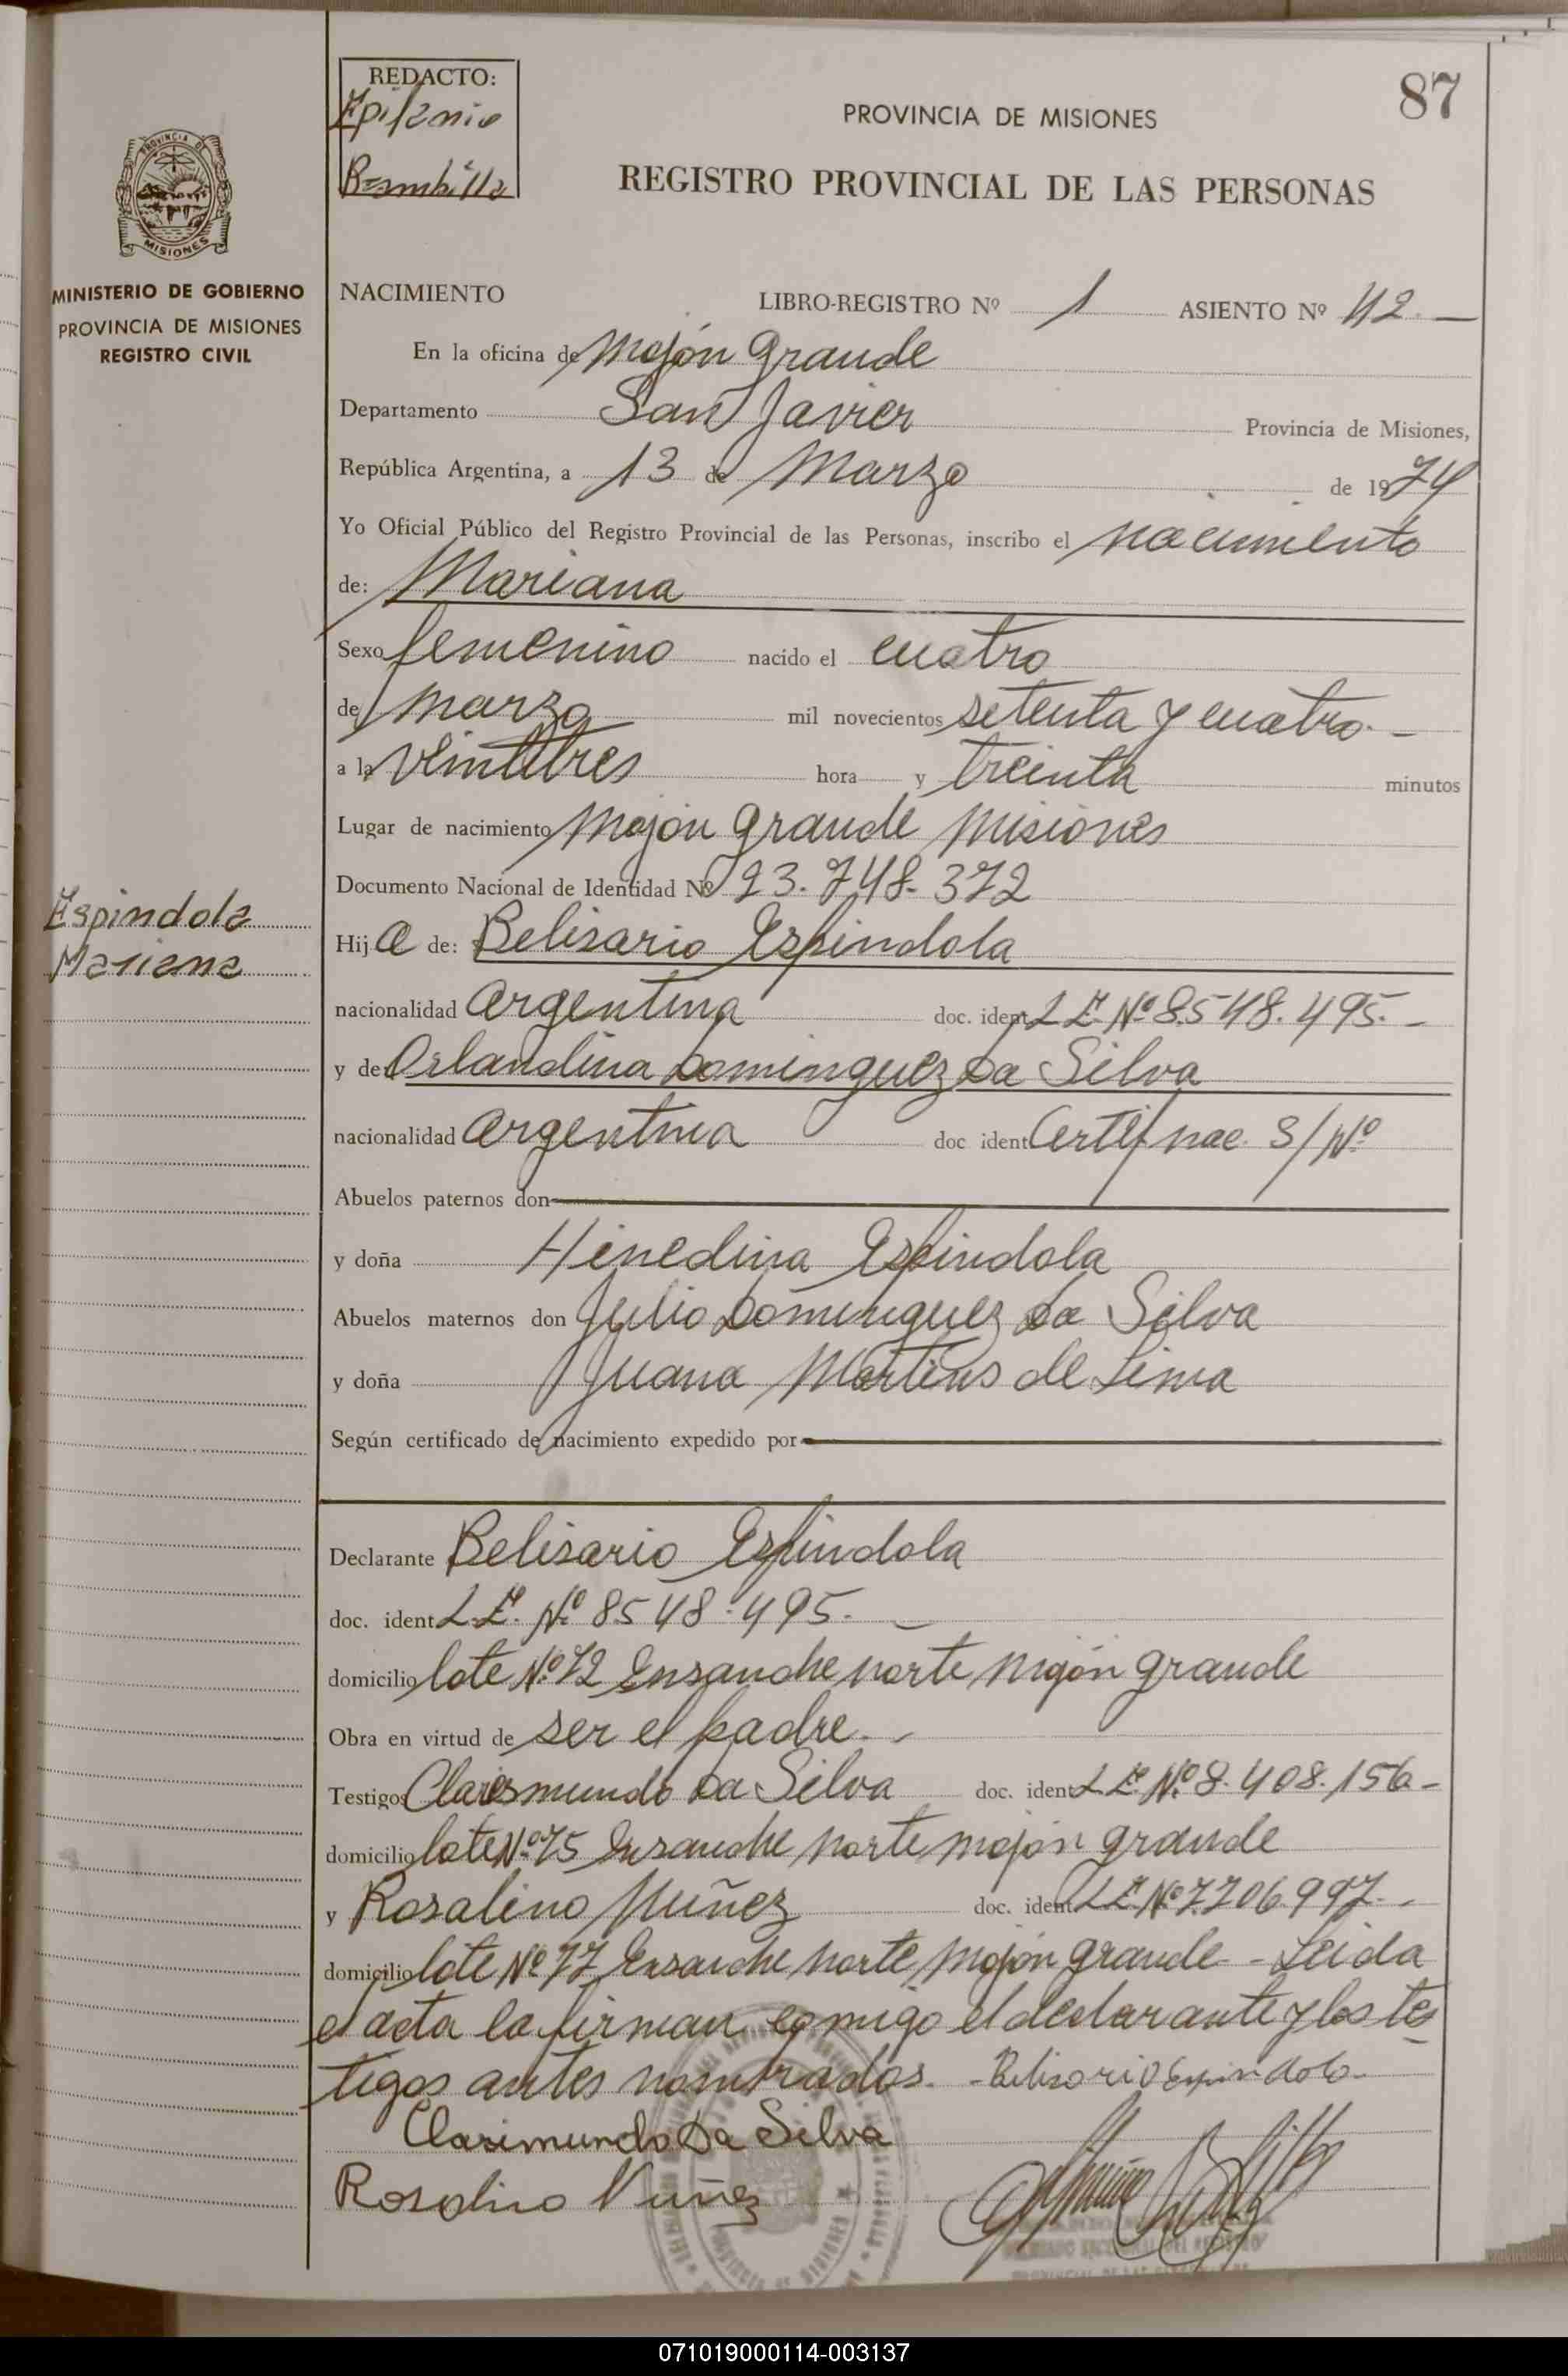 87
REDACTO:
Epifanio
Brambilla
PROVINCIA DE MISIONES
REGISTRO PROVINCIAL DE LAS PERSONAS
PROVINCIA DE
MISIONES
MINISTERIO DE GOBIERNO
PROVINCIA DE MISIONES
REGISTRO CIVIL
NACIMIENTO LIBRO-REGISTRO Nº 1 ASIENTO Nº 42.
En la oficina de Mojón Grande
Departamento San Javier Provincia de Misiones,
República Argentina, a 13 de Marzo de 1974
Yo Oficial Público del Registro Provincial de las Personas, inscribo el nacimiento
de: Mariana
Sexo femenino nacido el cuatro
de marzo mil novecientos setenta y cuatro.-
a la veintitres hora y treinta minutos
Lugar de nacimiento Mojón Grande Misiones
Documento Nacional de Identidad Nº 23.748.372
Espindola
Mariana
Hija de: Belisario Espindola
nacionalidad argentina doc. ident. L.E. Nº 8.548.495.-
y de Orlandina Dominguez Da Silva
nacionalidad argentina doc ident. Certif. nac. S/Nº
Abuelos paternos don
y doña Hinedina Espindola
Abuelos maternos don Julio Dominguez Da Silva
y doña Juana Martins de Lima
Según certificado de nacimiento expedido por
Declarante Belisario Espindola
doc. ident. L.E. Nº 8548.495.-
domicilio lote Nº 72 Ensanche norte Mojón grande
Obra en virtud de ser el padre.-
Testigos Clarismundo Da Silva doc. ident. L.E. Nº 8.408.156-
domicilio lote Nº 75 Ensanche norte mojón grande
y Rosalino Nuñez doc. ident. L.E. Nº 7.706.997.-
domicilio lote Nº 77 Ensanche norte Mojón grande - Leida
el acta la firman comigo el declarante y los tes
tigos antes nombrados. - Belisario Espindola-
Clarimundo Da Silva
Rosalino Nuñez
071019000114-003137